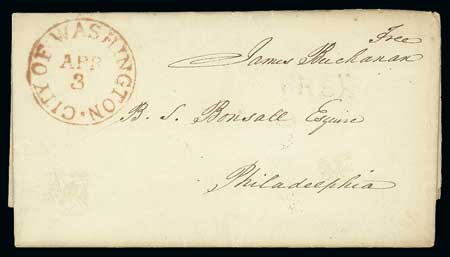 CITY OF WASHINGTON
APR
3
Free
James Buchanan
B. S. Bonsall Esquire
Philadelphia